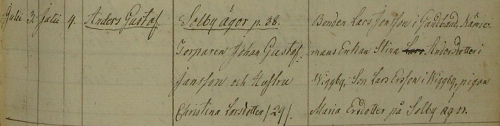 Juli 3. Juli 4. Anders Gustaf. Solby ägor p. 38. Bonden Lars Jonsson i
Torparen Johan Gustaf enkan Stina Lars Andersdotter i
Jansson och Hustru Wiggby, Son Lars Ersson i Wiggby, pigan
Christina Larsdotter /29/. Maria Ersdotter på Solby ägor.